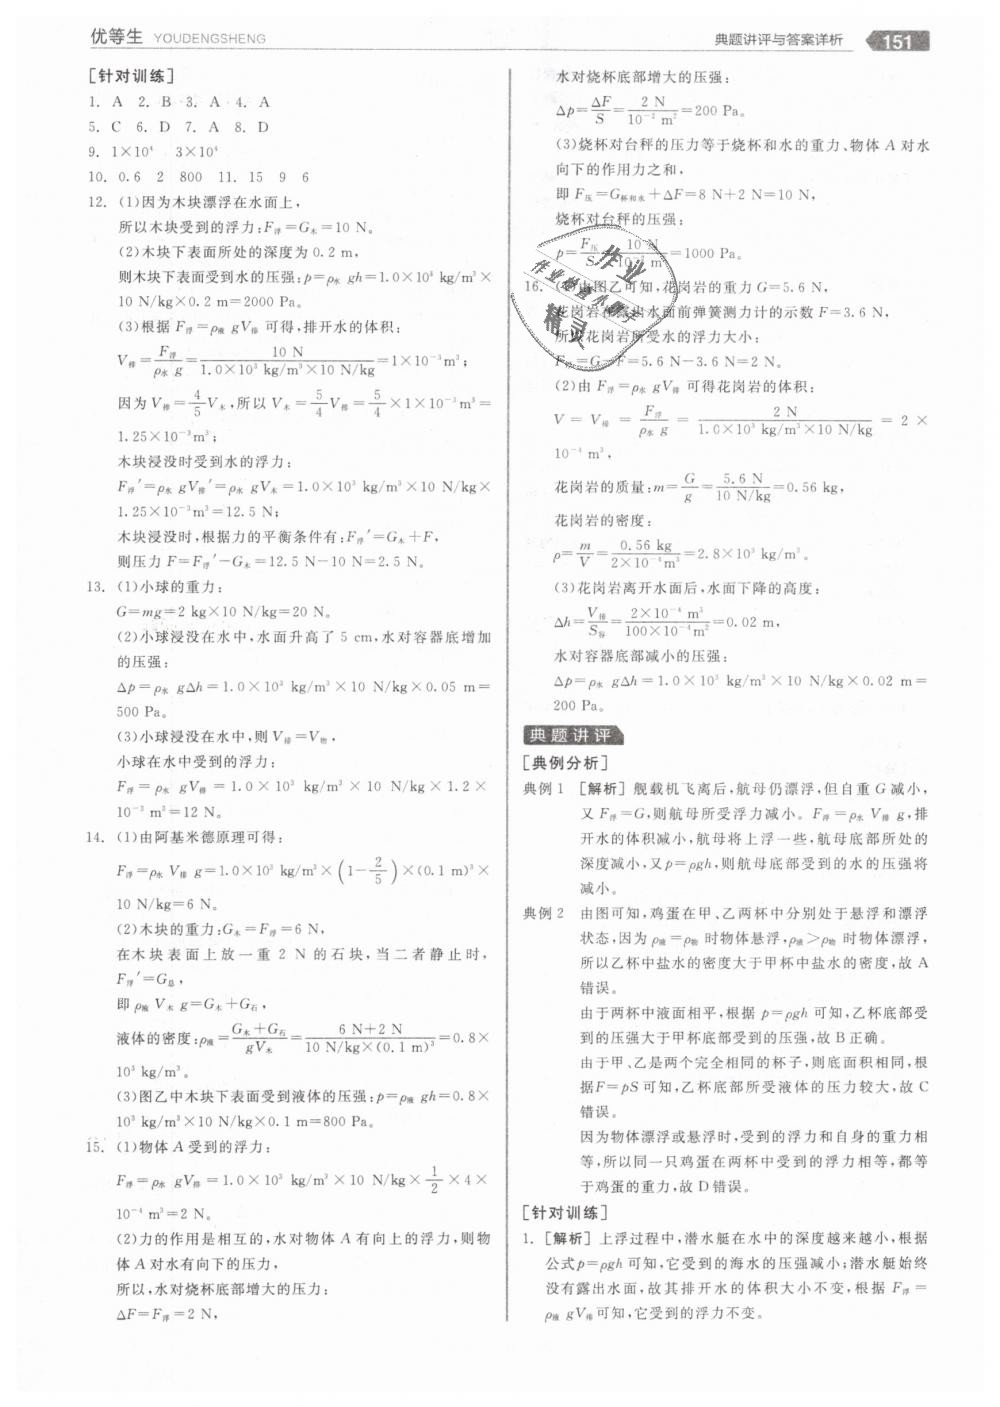 优等生 YOUDENGSHENG
典题讲评与答案详析 151
[针对训练]
1. A 2. B 3. A 4. A
5. C 6. D 7. A 8. D
9. 1×10⁴ 3×10⁴
10. 0.6 2 800 11. 15 9 6
12. (1)因为木块漂浮在水面上,
所以木块受到的浮力:F浮=G木=10 N。
(2)木块下表面所处的深度为 0.2 m,
则木块下表面受到水的压强:p=ρ水 gh=1.0×10³ kg/m³×
10 N/kg×0.2 m=2000 Pa。
(3)根据 F浮=ρ液 gV排 可得,排开水的体积:
V排=F浮/ρ水 g=10 N/1.0×10³ kg/m³×10 N/kg=1×10⁻³m³;
因为 V排=4/5V木,所以 V木=5/4V排=5/4×1×10⁻³m³=
1.25×10⁻³m³;
木块浸没时受到水的浮力:
F浮′=ρ水 gV排′=ρ水 gV木=1.0×10³ kg/m³×10 N/kg×
1.25×10⁻³m³=12.5 N;
木块浸没时,根据力的平衡条件有:F浮′=G木+F,
则压力 F=F浮′-G木=12.5 N-10 N=2.5 N。
13. (1)小球的重力:
G=mg=2 kg×10 N/kg=20 N。
(2)小球浸没在水中,水面升高了 5 cm,水对容器底增加
的压强:
Δp=ρ水 gΔh=1.0×10³ kg/m³×10 N/kg×0.05 m=
500 Pa。
(3)小球浸没在水中,则 V排=V物,
小球在水中受到的浮力:
F浮=ρ水 gV排=1.0×10³ kg/m³×10 N/kg×1.2×
10⁻³ m³=12 N。
14. (1)由阿基米德原理可得:
F浮=ρ水 V排 g=1.0×10³ kg/m³×(1-2/5)×(0.1 m)³×
10 N/kg=6 N。
(2)木块的重力:G木=F浮=6 N,
在木块表面上放一重 2 N 的石块,当二者静止时,
F浮′=G总,
即 ρ液 V木 g=G木+G石,
液体的密度:ρ液=G木+G石/gV木=6 N+2 N/10 N/kg×(0.1 m)³=0.8×
10³ kg/m³。
(3)图乙中木块下表面受到液体的压强:p=ρ液 gh=0.8×
10³ kg/m³×10 N/kg×0.1 m=800 Pa。
15. (1)物体 A 受到的浮力:
F浮=ρ水 gV排=1.0×10³ kg/m³×10 N/kg×1/2×4×
10⁻⁴ m³=2 N。
(2)力的作用是相互的,水对物体 A 有向上的浮力,则物
体 A 对水有向下的压力,
所以,水对烧杯底部增大的压力:
ΔF=F浮=2 N,
水对烧杯底部增大的压强:
Δp=ΔF/S=2 N/10⁻² m²=200 Pa。
(3)烧杯对台秤的压力等于烧杯和水的重力、物体 A 对水
向下的作用力之和,
即 F压=G杯和水+ΔF=8 N+2 N=10 N,
烧杯对台秤的压强:
p=F压/S=10 N/10⁻² m²=1000 Pa。
16. (1)由图乙可知,花岗岩的重力 G=5.6 N,
花岗岩在露出水面前弹簧测力计的示数 F=3.6 N,
所以花岗岩所受水的浮力大小:
F浮=G-F=5.6 N-3.6 N=2 N。
(2)由 F浮=ρ水 gV排 可得花岗岩的体积:
V = V排 = F浮/ρ水 g = 2 N/1.0×10³ kg/m³×10 N/kg = 2 ×
10⁻⁴ m³,
花岗岩的质量:m=G/g=5.6 N/10 N/kg=0.56 kg,
花岗岩的密度:
ρ=m/V=0.56 kg/2×10⁻⁴m³=2.8×10³ kg/m³。
(3)花岗岩离开水面后,水面下降的高度:
Δh=V排/S容=2×10⁻⁴ m³/100×10⁻⁴m²=0.02 m,
水对容器底部减小的压强:
Δp=ρ水 gΔh=1.0×10³ kg/m³×10 N/kg×0.02 m=
200 Pa。
典题讲评
[典例分析]
典例 1 [解析] 舰载机飞离后,航母仍漂浮,但自重 G 减小,
又 F浮=G,则航母所受浮力减小。F浮=ρ水 V排 g,排
开水的体积减小,航母将上浮一些,航母底部所处的
深度减小,又 p=ρgh,则航母底部受到的水的压强将
减小。
典例 2 由图可知,鸡蛋在甲、乙两杯中分别处于悬浮和漂浮
状态,因为 ρ液=ρ物 时物体悬浮,ρ液>ρ物 时物体漂浮,
所以乙杯中盐水的密度大于甲杯中盐水的密度,故 A
错误。
由于两杯中液面相平,根据 p=ρgh 可知,乙杯底部受
到的压强大于甲杯底部受到的压强,故 B 正确。
由于甲、乙是两个完全相同的杯子,则底面积相同,根
据F=pS 可知,乙杯底部所受液体的压力较大,故 C
错误。
因为物体漂浮或悬浮时,受到的浮力和自身的重力相
等,所以同一只鸡蛋在两杯中受到的浮力相等,都等
于鸡蛋的重力,故 D 错误。
[针对训练]
1. [解析] 上浮过程中,潜水艇在水中的深度越来越小,根据
公式 p=ρgh 可知,它受到的海水的压强减小;潜水艇始终
没有露出水面,故其排开水的体积大小不变,根据 F浮=
ρ液 gV排 可知,它受到的浮力不变。
作业
作业检查小助手
精灵